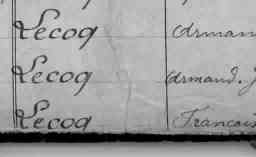 Lecoq Arman
Lecoq Armand. J
Lecoq Francois